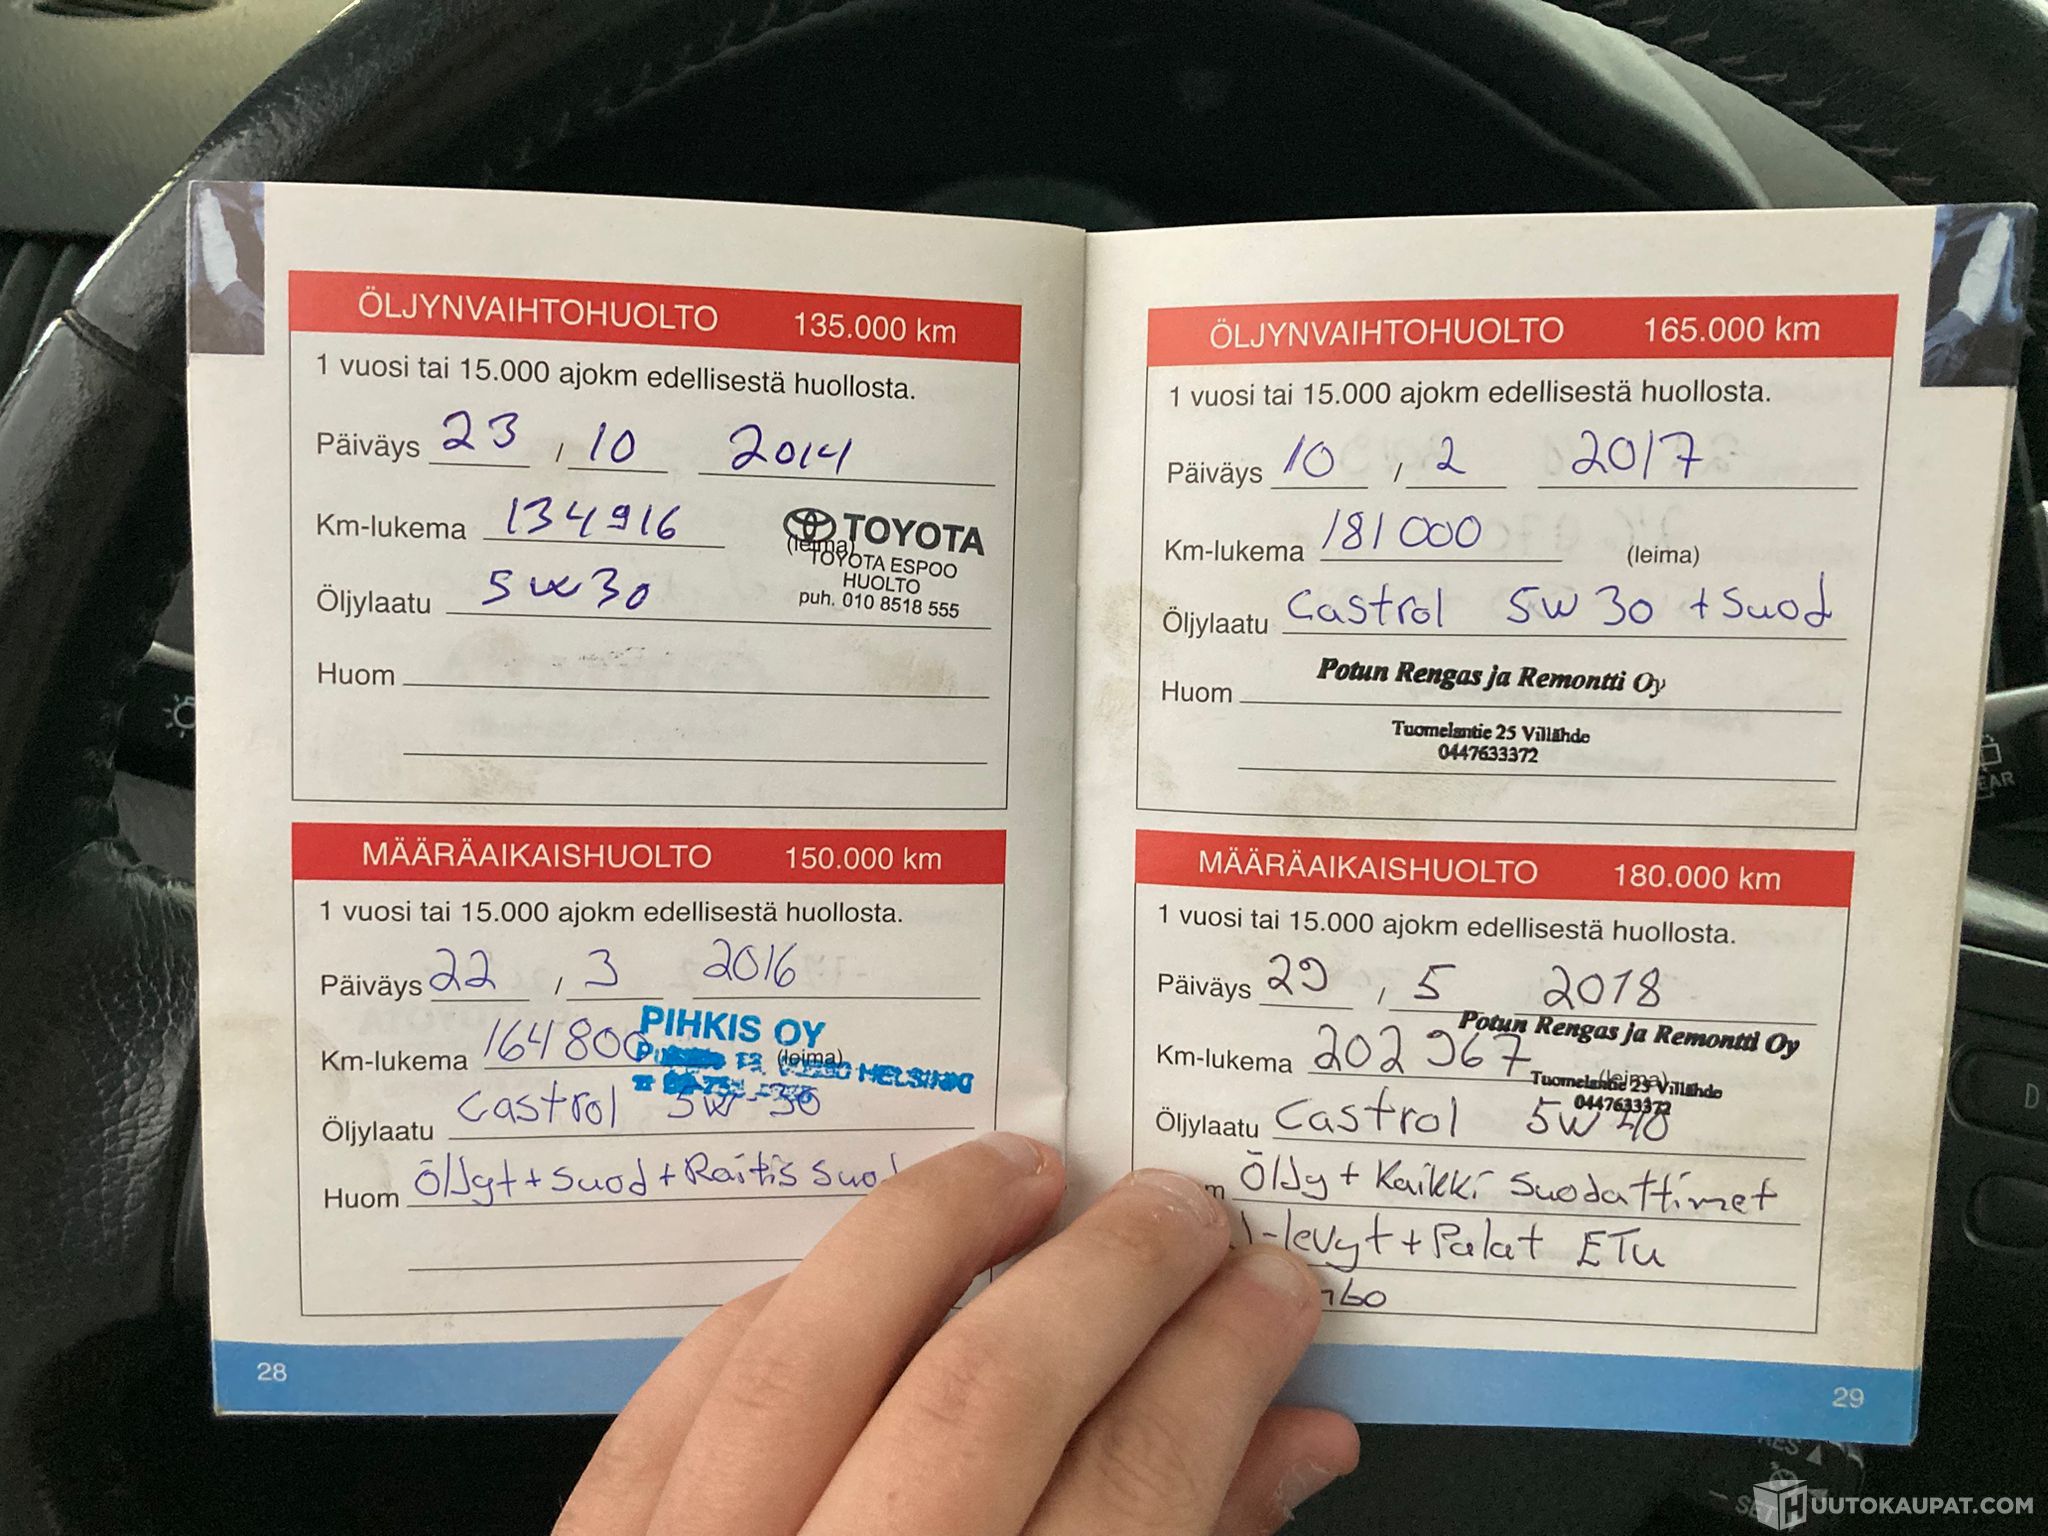 ÖLJYNVAIHTOHUOLTO 135.000 km
1 vuosi tai 15.000 ajokm edellisestä huollosta.
Päiväys 23 / 10 2014
Km-lukema 134916
TOYOTA
(leima)
TOYOTA ESPOO
HUOLTO
puh. 010 8518 555
Öljylaatu 5w30
Huom
MÄÄRÄAIKAISHUOLTO 150.000 km
1 vuosi tai 15.000 ajokm edellisestä huollosta.
Päiväys 22 / 3 2016
PIHKIS OY
Km-lukema 164800
(leima)
HELSINKI
Öljylaatu Castrol 5W-30
Huom Öljyt + Suod + Raitis suod
28
ÖLJYNVAIHTOHUOLTO 165.000 km
1 vuosi tai 15.000 ajokm edellisestä huollosta.
Päiväys 10 / 2 2017
Km-lukema 181000 (leima)
Öljylaatu Castrol 5W30 + Suod
Potun Rengas ja Remontti Oy
Huom
Tuomelantie 25 Villähde
0447633372
MÄÄRÄAIKAISHUOLTO 180.000 km
1 vuosi tai 15.000 ajokm edellisestä huollosta.
Päiväys 29 / 5 2018
Potun Rengas ja Remontti Oy
Km-lukema 202967
(leima)
Tuomelantie 25 Villähde
0447633372
Öljylaatu Castrol 5W40
Öljy + Kaikki Suodattimet
-levyt + Palat ETU
29
RES
UUTOKAUPAT.COM